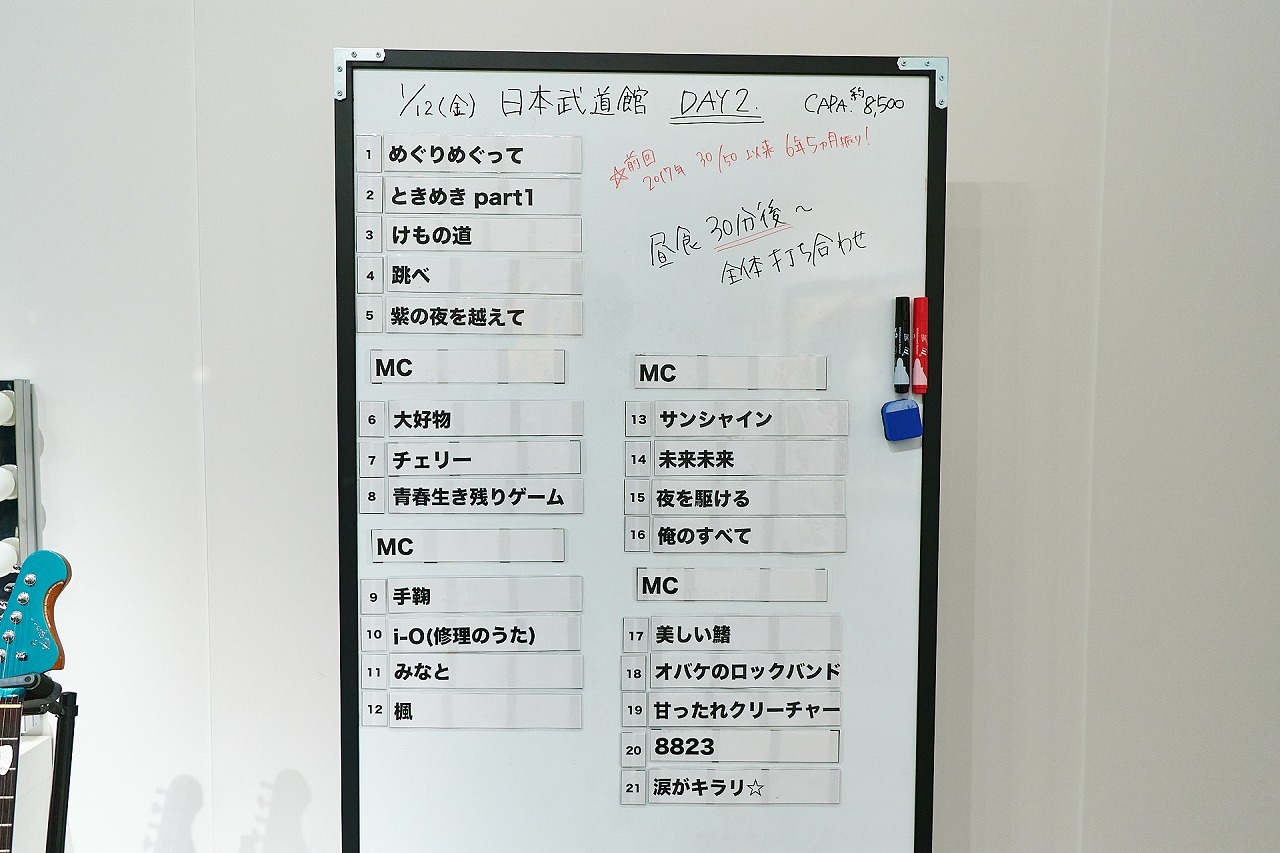 1/12(金) 日本武道館 DAY2. CAPA.約8,500
☆前回
2017年 30/50 以来 6年5カ月振り!
昼食 30分後~
全体打ち合わせ
1 めぐりめぐって
2 ときめき part1
3 けもの道
4 跳べ
5 紫の夜を越えて
MC
6 大好物
7 チェリー
8 青春生き残りゲーム
MC
9 手鞠
10 i-O(修理のうた)
11 みなと
12 楓
MC
13 サンシャイン
14 未来未来
15 夜を駆ける
16 俺のすべて
MC
17 美しい鰭
18 オバケのロックバンド
19 甘ったれクリーチャー
20 8823
21 涙がキラリ☆